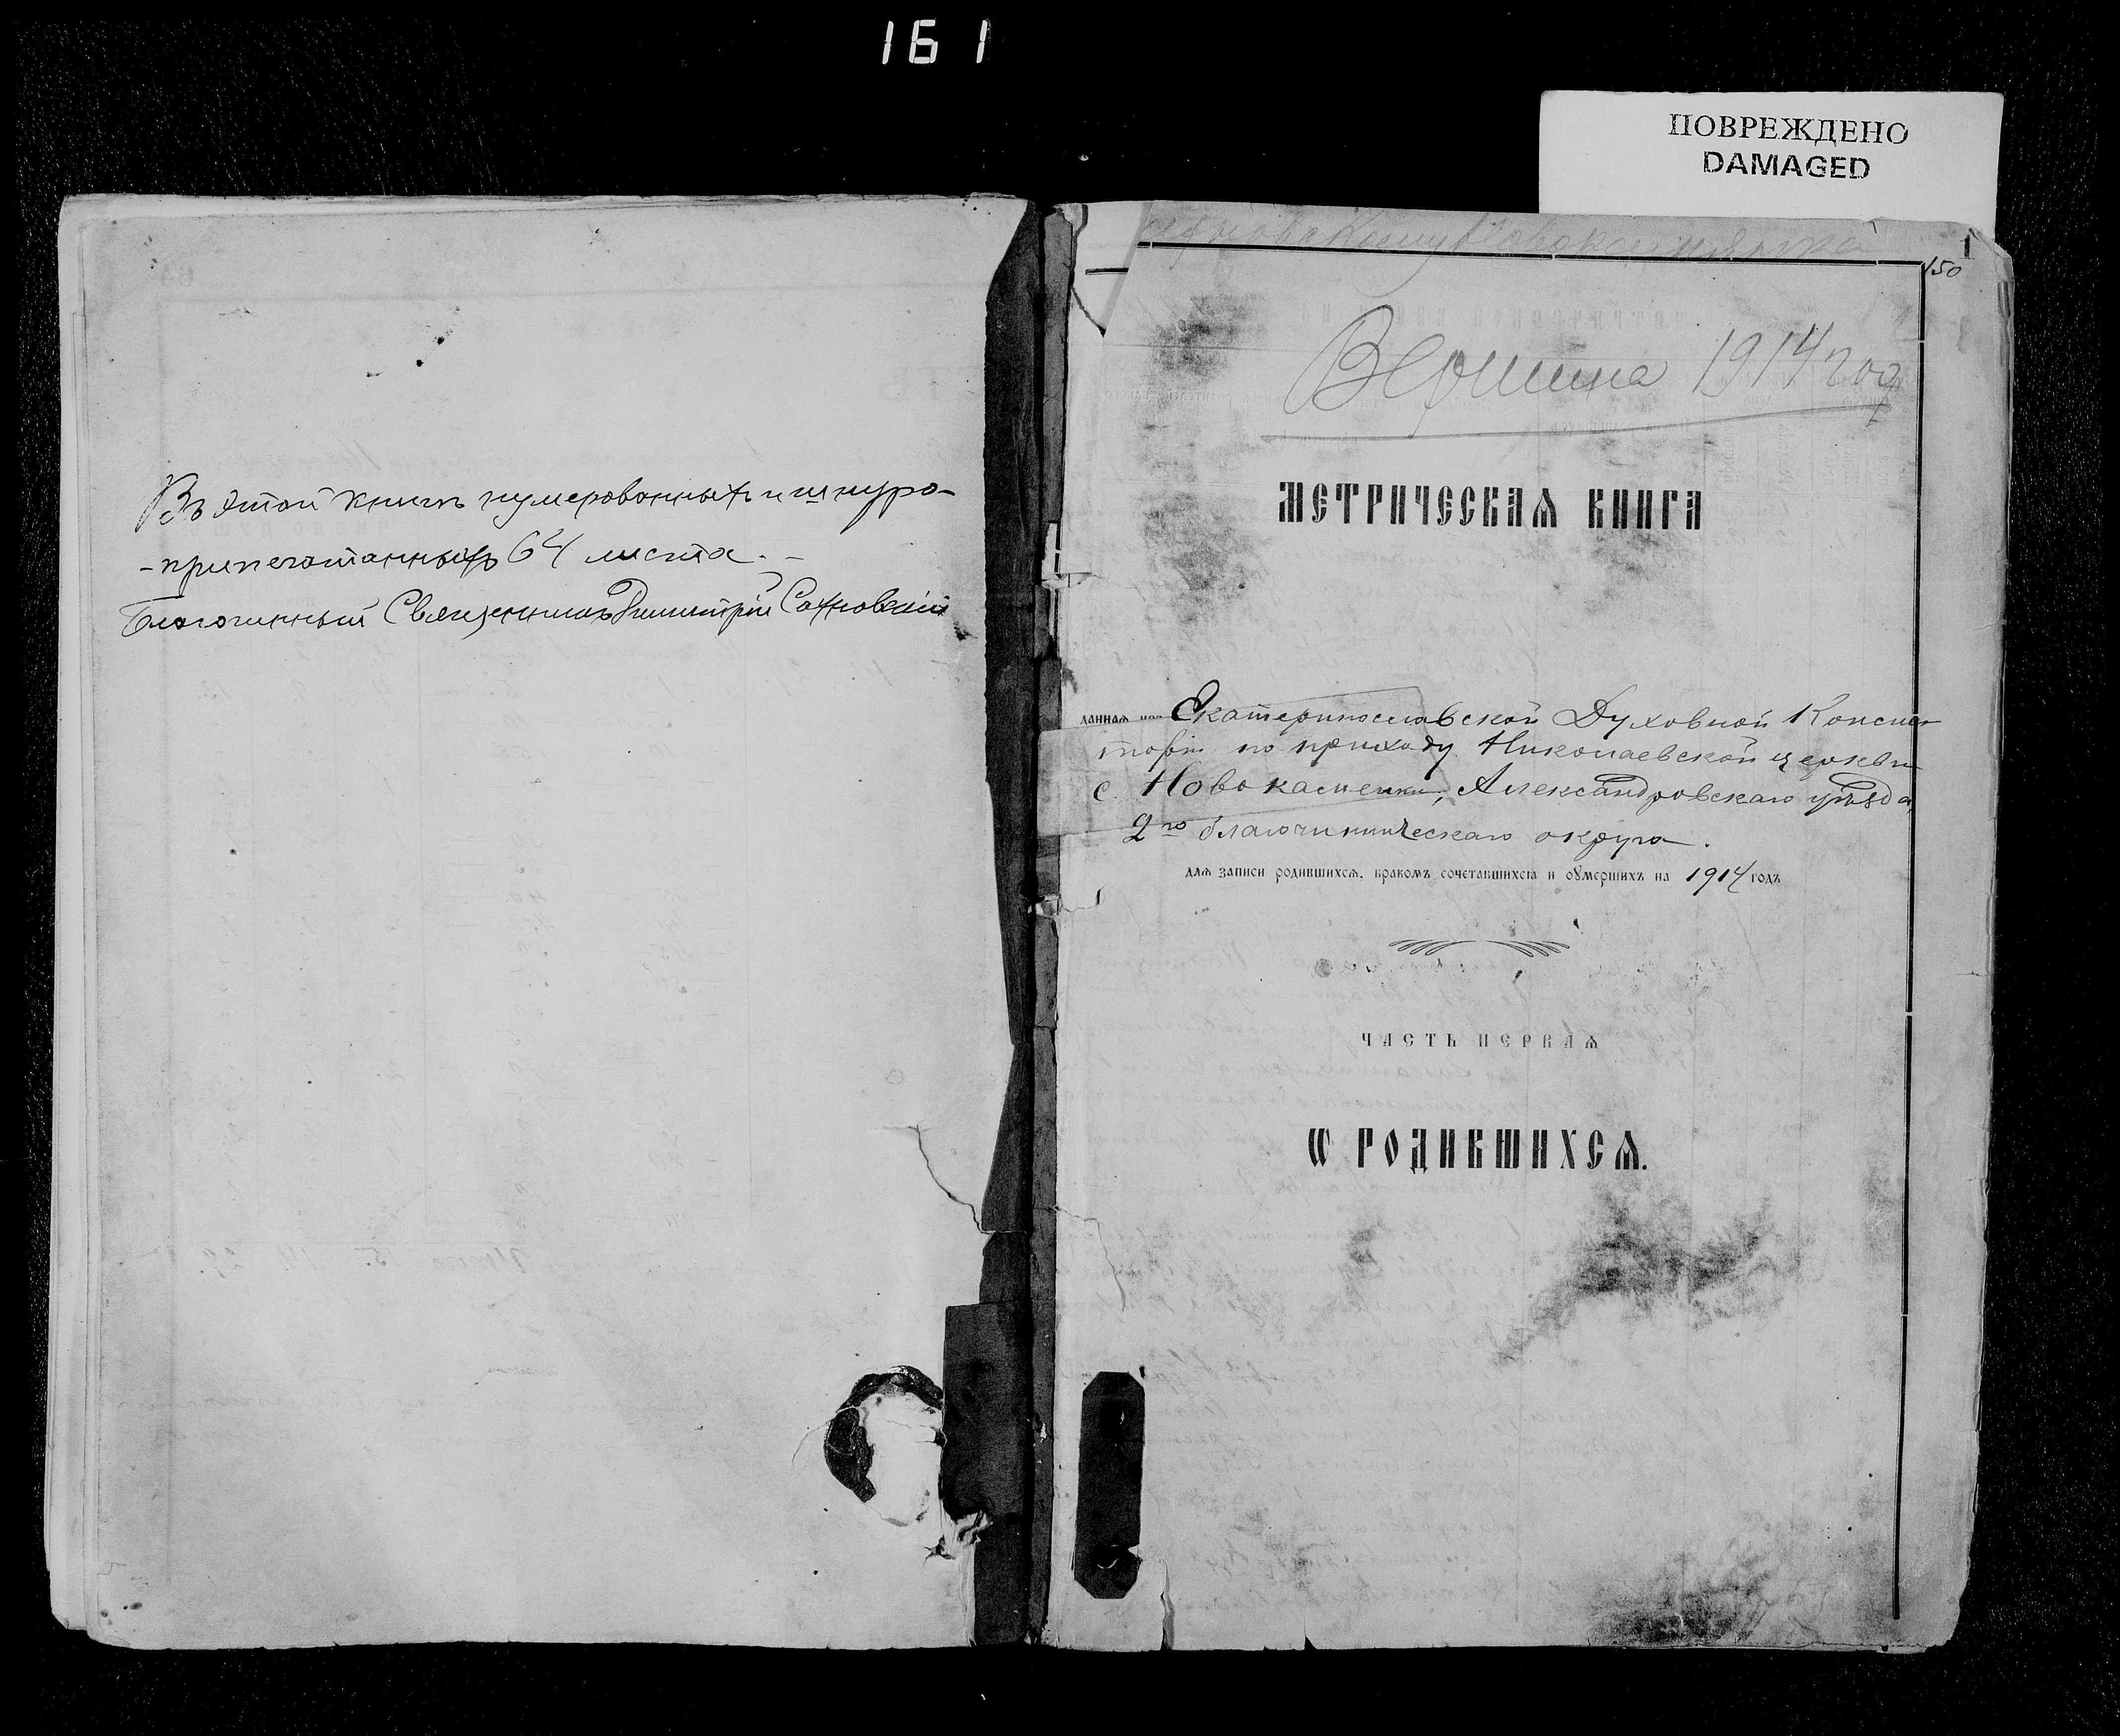 161
ПОВРЕЖДЕНО
DAMAGED
Въ этой книгѣ нумерованныхъ и шнуро-
-припечатанныхъ 64 листа. -
Благочинный Священникъ Димитрій Сахновскій
1
150
Вершина 1914 год
МЕТРИЧЕСКАѦ КНИГА
даннаѧ изъ Екатеринославской Духовной Консис-
торіи по приходу Николаевской церкви
с. Новокаменки, Александровскаго уѣзда,
2го благочинническаго округа.
длѧ записи родившихсѧ, бракомъ сочетавшихсѧ и оумершихъ на 1914 годъ
ЧАСТЬ ПЕРВАѦ
Ѡ РОДИВШИХСѦ.